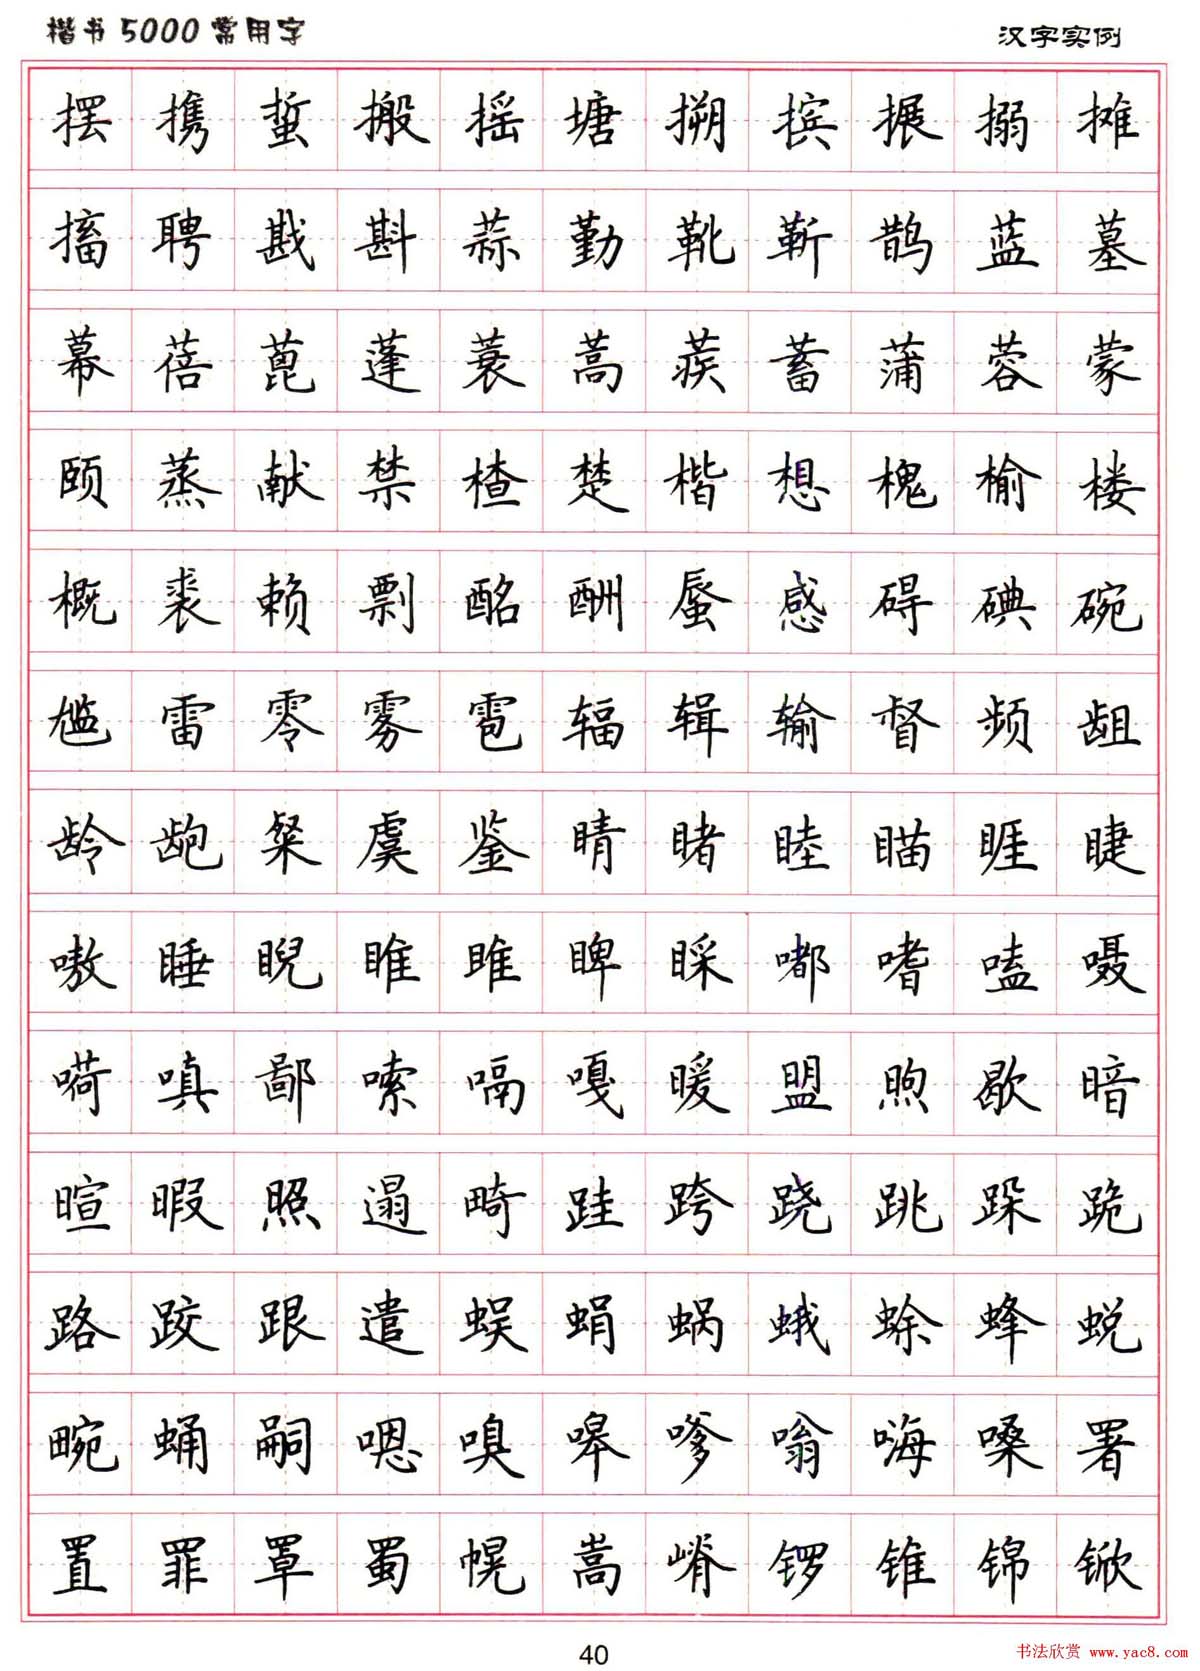 楷书5000常用字 汉字实例
摆携蜇搬摇塘搠摈搌搦摊
搐聘戡斟蒜勤靴靳鹊蓝墓
幕蓓蓖蓬蓑蒿蒺蓄蒲蓉蒙
颐蒸献禁楂楚楷想槐榆楼
概裘赖剽酩酬蜃感碍碘碗
尴雷零雾雹辐辑输督频龃
龄龅粲虞鉴睛睹睦瞄睚睫
嗷睡睨睢雎睥睬嘟嗜嗑嗫
嗬嗔鄙嗦嗝嘎暖盟煦歇暗
暄暇照遢畸跬跨跷跳跺跪
路跤跟遣蜈蜎蜗蛾蜍蜂蜕
畹蛹嗣嗯嗅嗥嗲嗡嗨嗓署
置罪罩蜀幌嵩嵴锣锥锦锨
40
书法欣赏 www.yac8.com